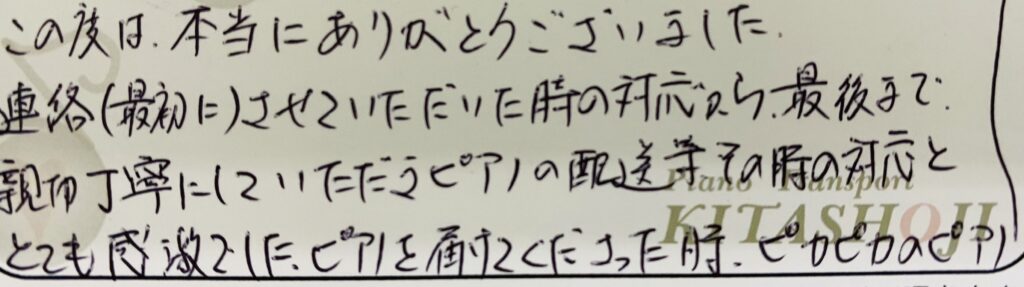 この度は、本当にありがとうございました。
連絡(最初に)させていただいた時の対応から、最後まで、
親切丁寧にしていただきピアノの配送等、その時の対応と
とても感激でした。ピアノを届けてくださった時、ピカピカのピアノ
Piano Transport
KITASHOJI